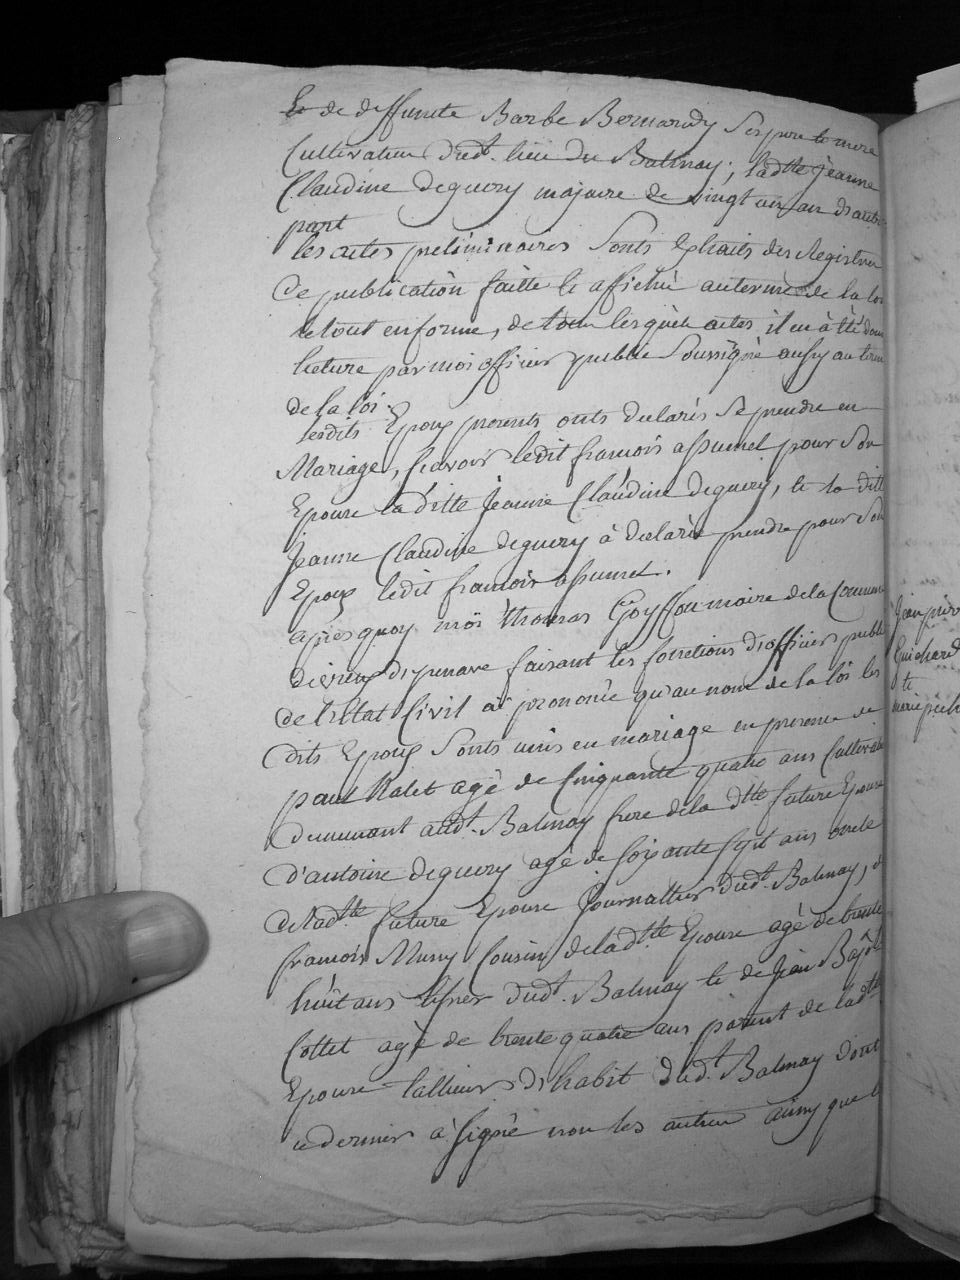 Et de deffunte Barbe Bernardy Ses pere te mere
Cultivateur dudt. lieu du Balmay; ladtte Jeanne
Claudine deguery majaure de vingt un an d'autre
part
les actes preliminaires Sonts Extraits des Registres
De publication faitte te affiché autermes de la loi
le tout en forme, de tous lesquels actes il en à été donné
lecture par moi officier publie Soussigné aussy au termes
de la loi.
lesdits Epoux presents onts declarés Se prendre en
Mariage, scavoir ledit francois assumel pour Son
Epouse la ditte Jeanne Claudine deguery, te la ditte
Jeanne Claudine deguery à declaré prendre pour Son
Epoux ledit francois assumel.
apres quoy moi thomas Goyffon maire de la Commune
de vieux d'yzenave faisant les fonctions d'officier public
de l'Etat Civil ai prononcé qu'au nom de la loi les
dits Epoux Sonts unis en mariage en presence de
paul Ralet agé de Cinquante quatre ans Cultivateur
demeurant audt. Balmay frere de la dtte future Epouse
d'antoine deguery agé de soixante sept ans oncle
de ladtte future Epouse Journallier dudt. Balmay, de
francois Muny Cousin de ladtte Epouse agé de trente
huit ans dudt. Balmay te de Jean Bapte
Collet agé de trente quatre ans parent de ladtte
Epouse tallieur d'habit dudt. Balmay dont
ce dernier à signé non les autres ainsy que
Jean pierre
Guichard
te
marie